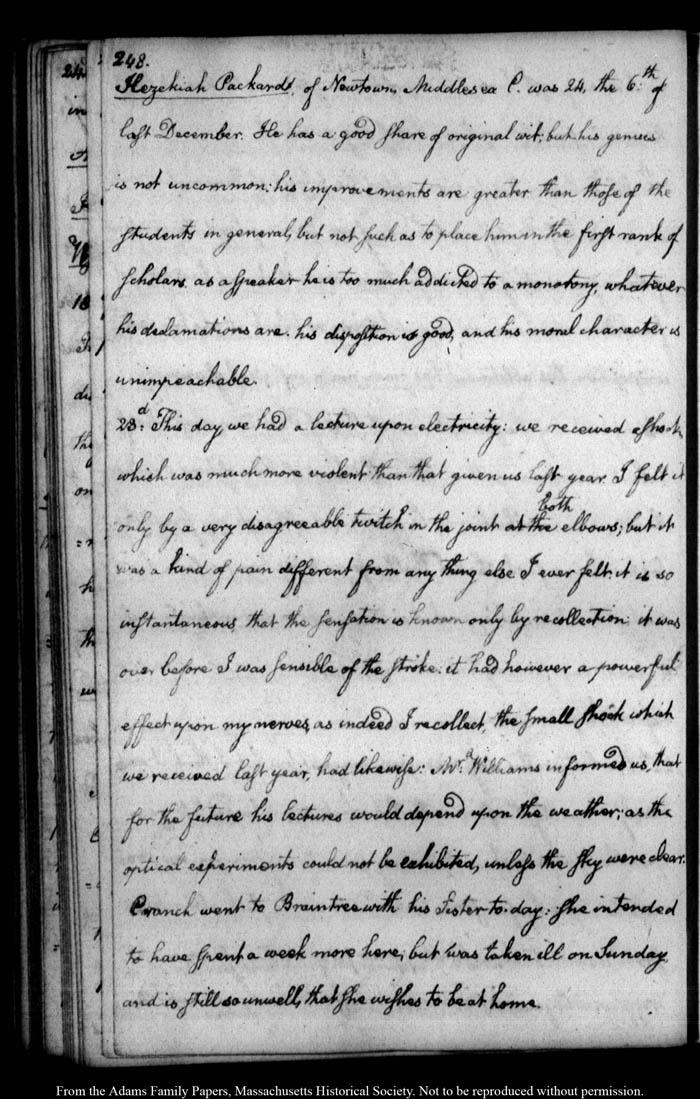 248.
Hezekiah Packard, of Newtown, Middlesex C. was 24, the 6:th of
last December. He has a good share of original wit; but his genius
is not uncommon: his improvements are greater than those of the
students in general, but not such as to place him in the first rank of
scholars. as a speaker he is too much addicted to a monotony, whatever
his declamations are. his disposition is good, and his moral character is
unimpeachable.
23:d This day, we had a lecture upon electricity: we received a shock,
which was much more violent than that given us last year. I felt it
only by a very disagreeable twitch in the joint at the both elbows; but it
was a kind of pain different from any thing else I ever felt. it is so
instantaneous, that the sensation is known only by recollection: it was
over before I was sensible of the stroke: it had however a powerful
effect upon my nerves, as indeed I recollect, the small shock which
we received last year, had likewise: Mr. Williams informed us, that
for the future his lectures would depend upon the weather; as the
optical experiments could not be exhibited, unless the sky were clear.
Cranch went to Braintree with his Sister to-day: she intended
to have spent a week more here, but was taken ill on Sunday,
and is still so unwell, that she wishes to be at home.
24
in
18
du
the
on
th
From the Adams Family Papers, Massachusetts Historical Society. Not to be reproduced without permission.